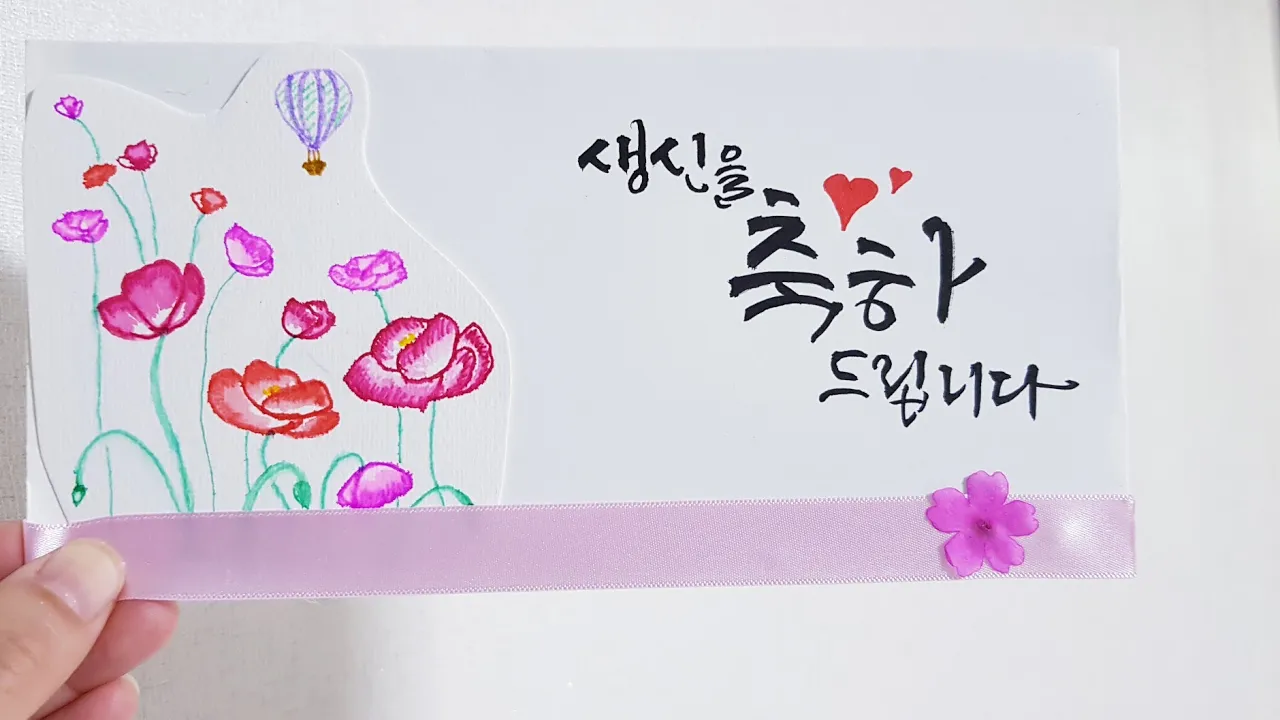 생신을
축하
드립니다